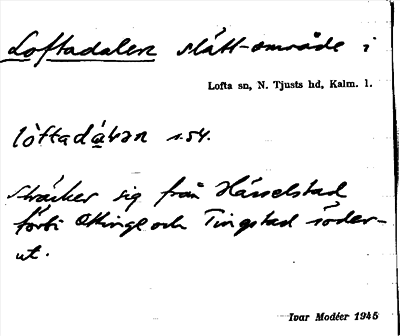 Loftadalen slätt-område i
Lofta sn, N. Tjusts hd, Kalm. l.
s. 54.
sträcker sig från Hässelstad
förbi Ottinge och Tingstad söder-
ut.
Ivar Modéer 1945